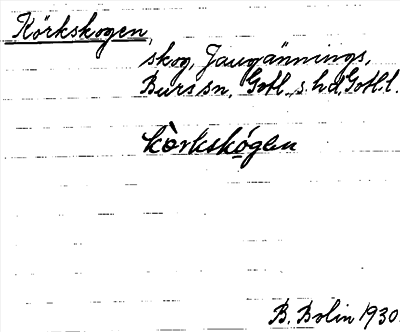 Körkskogen,
skog, Jaugännings,
Burs sn, Gotl. s. hd, Gotl. l.
kòrkskógen
B. Bolin 1930.